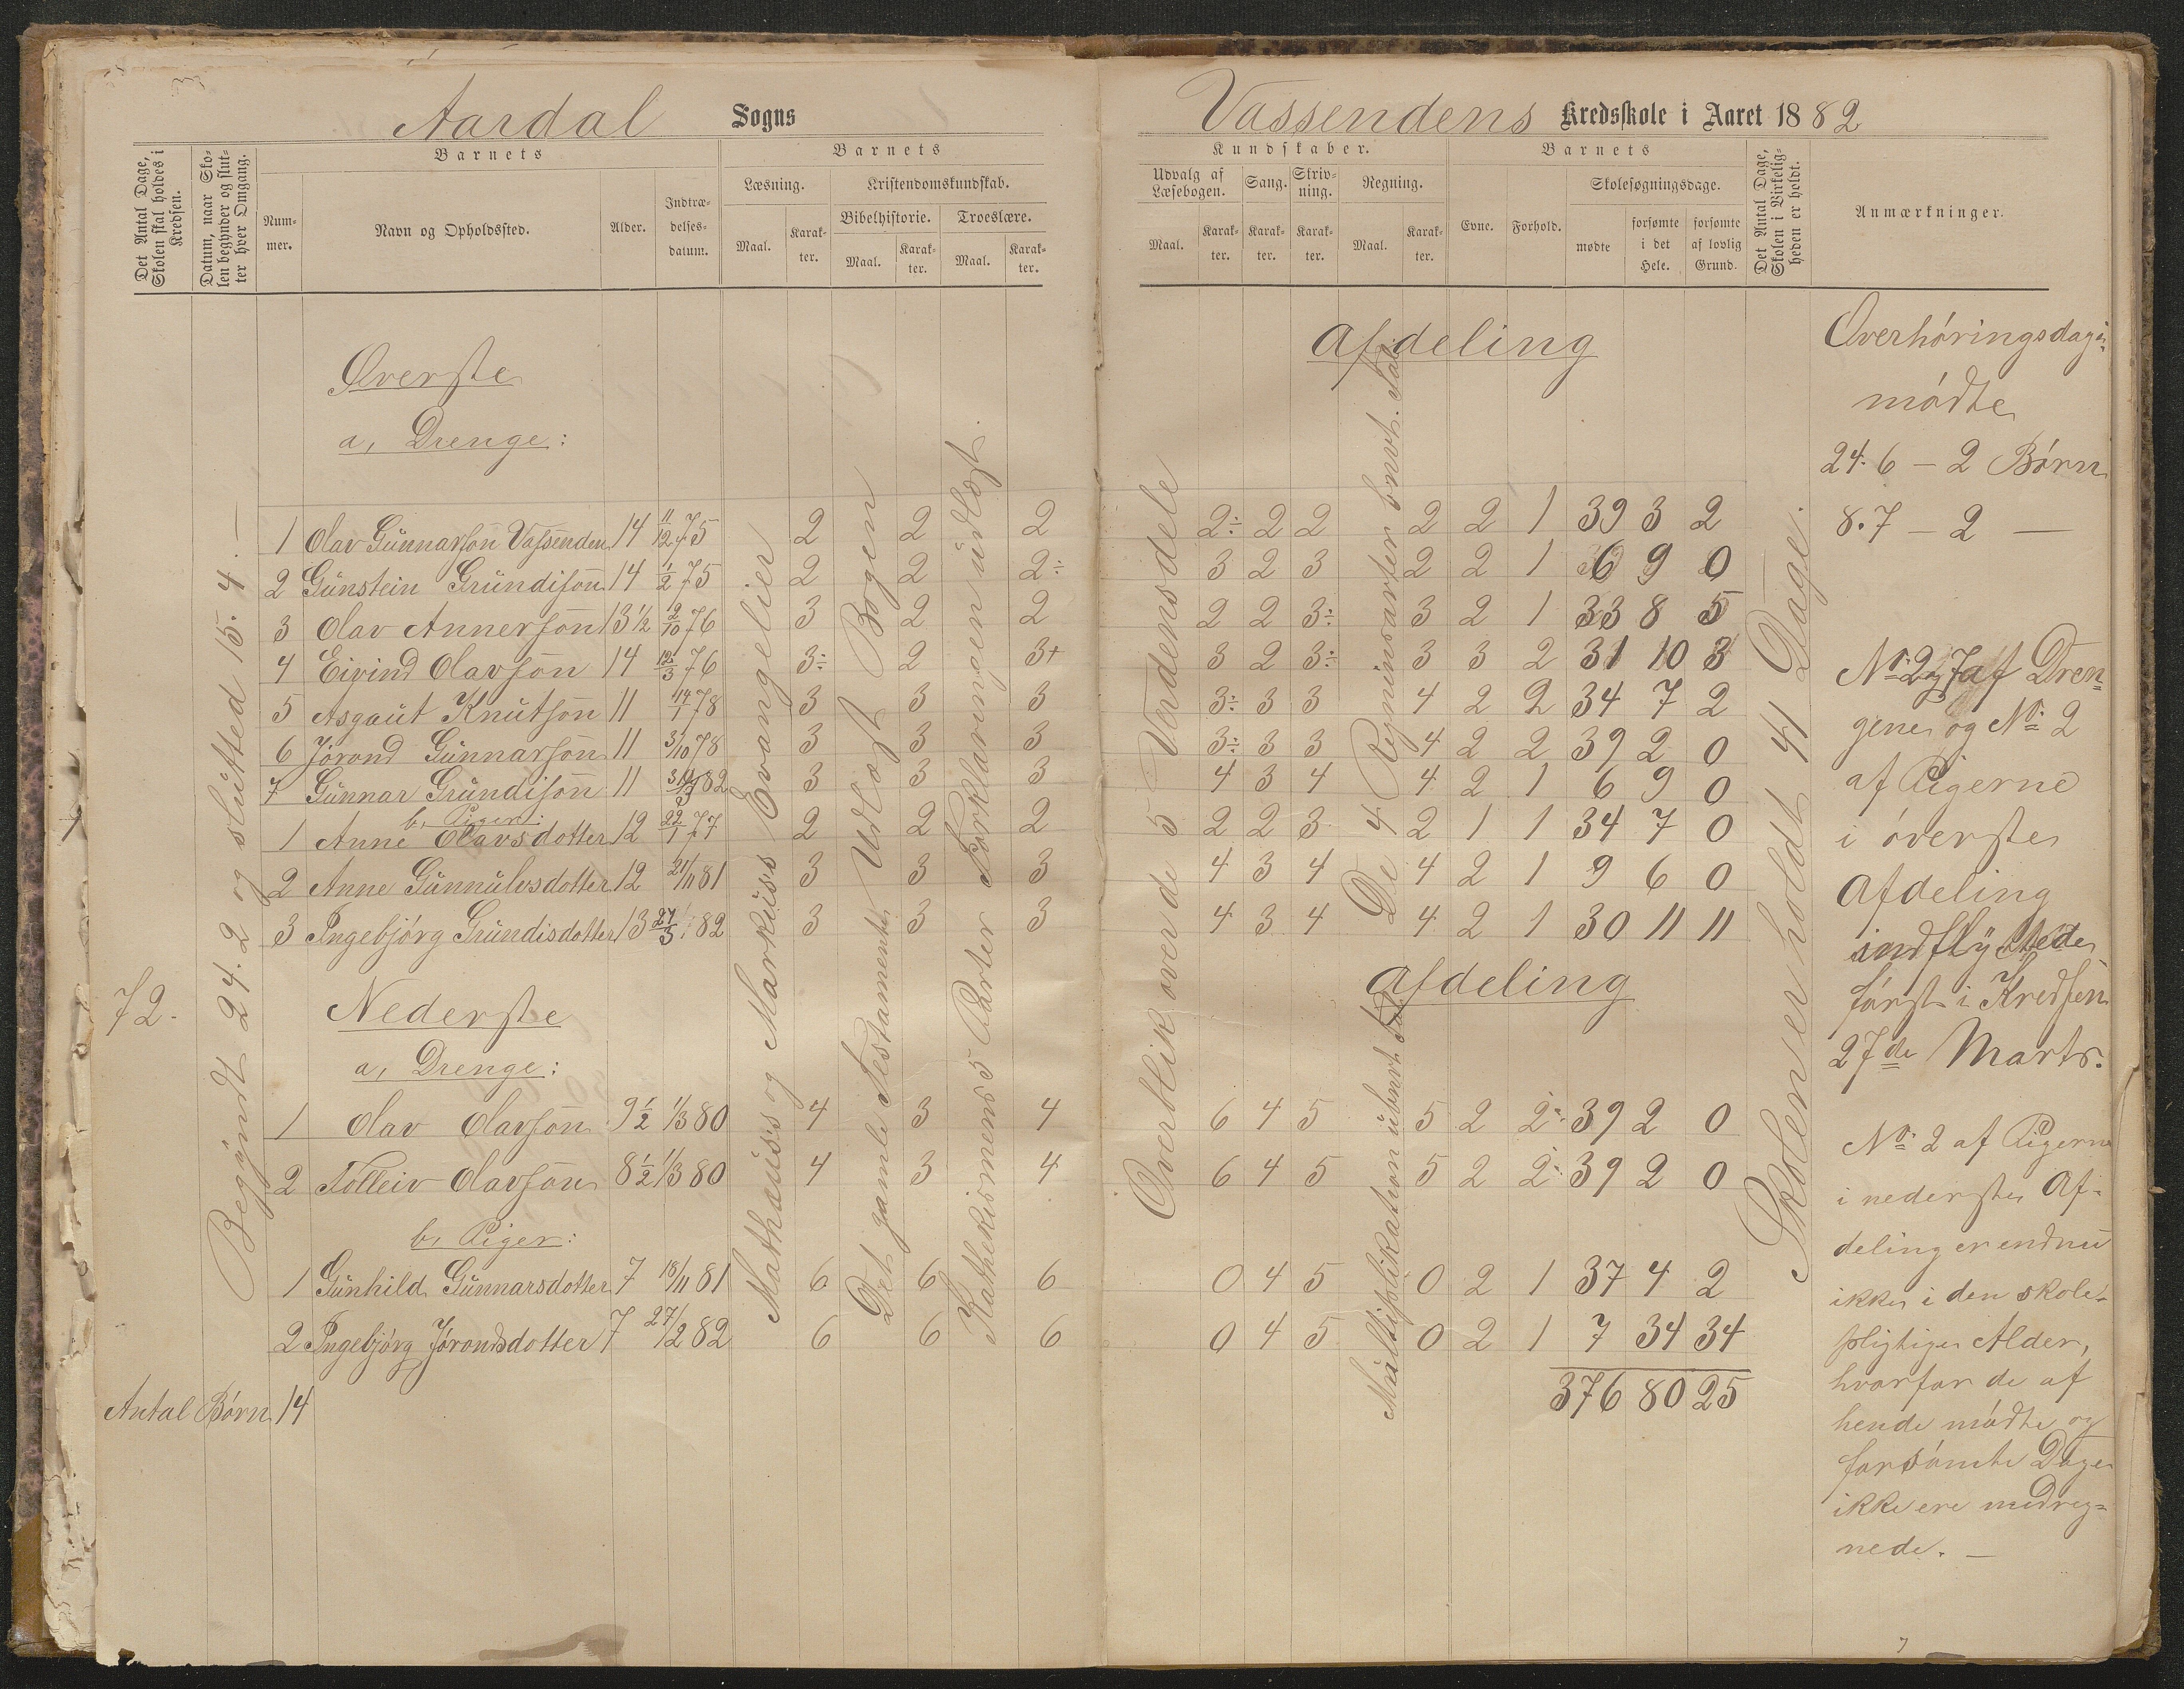 Aardal Sogns
Vassendens Kredsskole i Aaret 1882
Det Antal Dage, Skolen skal holdes i Kredsen.
Datum, naar Skolen begynder og slutter hver Omgang.
Barnets
Nummer.
Navn og Opholdssted.
Alder.
Indtrædelses-datum.
Barnets
Læsning.
Maal.
Karakter.
Kristendomskundskab.
Bibelhistorie.
Maal.
Karakter.
Troeslære.
Maal.
Karakter.
Kundskaber.
Udvalg af Læsebogen.
Maal.
Karakter.
Sang.
Karakter.
Skrivning.
Karakter.
Regning.
Maal.
Karakter.
Barnets
Evne.
Forhold.
Skolesøgningsdage.
mødte
forsømte i det Hele.
forsømte af lovlig Grund.
Det Antal Dage, Skolen i Virkeligheden er holdt.
Anmærkninger.
Øverste Afdeling
a, Drenge:
1 Olav Gunnarson Vassenden 14 11/12 75 2 2 2 2÷ 2 2 2 2 1 39 3 2
2 Gunstein Grundison 14 1/2 75 2 2 2÷ 3 2 3 2 2 1 6 9 0
3 Olav Annerson 13½ 2/10 76 3 2 2 2 2 3÷ 3 2 1 33 8 5
4 Eivind Olavson 14 12/3 76 3÷ 2 3+ 3 2 3÷ 3 3 2 31 10 3
5 Asgaut Knutson 11 14/1 78 3 3 3 3÷ 3 3 4 2 2 34 7 2
6 Jørond Gunnarson 11 3/10 78 3 3 3 3÷ 3 3 4 2 2 39 2 0
7 Gunnar Grundison 11 82 3 3 3 4 3 4 4 2 1 6 9 0
b, Piger:
1 Anne Olavsdotter 12 22/1 77 2 2 2 2 2 3 2 1 1 34 7 0
2 Anne Gunnulvsdotter 12 21/11 81 3 3 3 4 3 4 4 2 1 9 6 0
3 Ingebjørg Grundisdotter 13 27/3 82 3 3 3 4 3 4 4 2 1 30 11 11
72.
Nederste Afdeling
a, Drenge:
1 Olav Olavson 9½ 1/3 80 4 3 4 6 4 5 5 2 2÷ 39 2 0
2 Tolleiv Olavson 8½ 1/3 80 4 3 4 6 4 5 5 2 2÷ 39 2 0
b, Piger:
1 Gunhild Gunnarsdotter 7 18/11 81 6 6 6 0 4 5 0 2 1 37 4 2
2 Ingebjørg Jørondsdotter 7 27/2 82 6 6 6 0 4 5 0 2 1 7 34 34
376 80 25
Antal Børn 14
Begyndt 24.2 og slutted 15.4.—
Mathæuss og Markuss Evangelier
Det gamle Testamente Udlagt Bogen
Kathekismens 5 Parter Forklaringen undlagt.
Overblik over de 5 Verdensdele
De 4 Regningsarter
Multiplikation
Skolen er holdt 41 Dage.
Overhøringsdagen
mødte
24.6 – 2 Børn
8.7 – 2 —
No 2 og 7 af Dren=
gene og No 2
af Pigerne
i øverste
Afdeling
indflyttede
først i Kredsen
27de Marts.
No 2 af Pigerne
i nederste Af-
deling er endnu
ikke i den skole-
pligtige Alder,
hvorfor de af
hende mødte og
forsømte Dage
ikke ere medreg=
nede. —